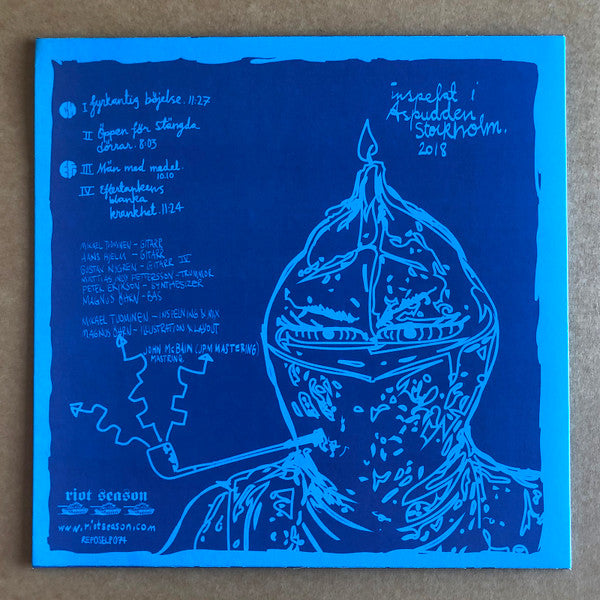 I fyrkantig böjelse. 11:27
II Öppen för Stängda
dörrar. 8:03
III Män med medel.
10.10
IV Eftertankens
blanka
krankhet. 11:24
inspelat i
Aspudden
Stockholm.
2018
GITARR
HANS HJELM - GITARR
GUSTAV NYGREN - GITARR IV
MATTIAS PETTERSSON - TRUMMOR
PETER ERIKSON - SYNTHESIZER
MAGNUS BÖRN - BAS
MIKAEL TUOMINEN - INSPELNING & MIX
MAGNUS BÖRN - ILLUSTRATION & LAYOUT
JOHN McBAIN (JPM MASTERING)
MASTRING
riot season
www.riotseason.com
REPOSELP074